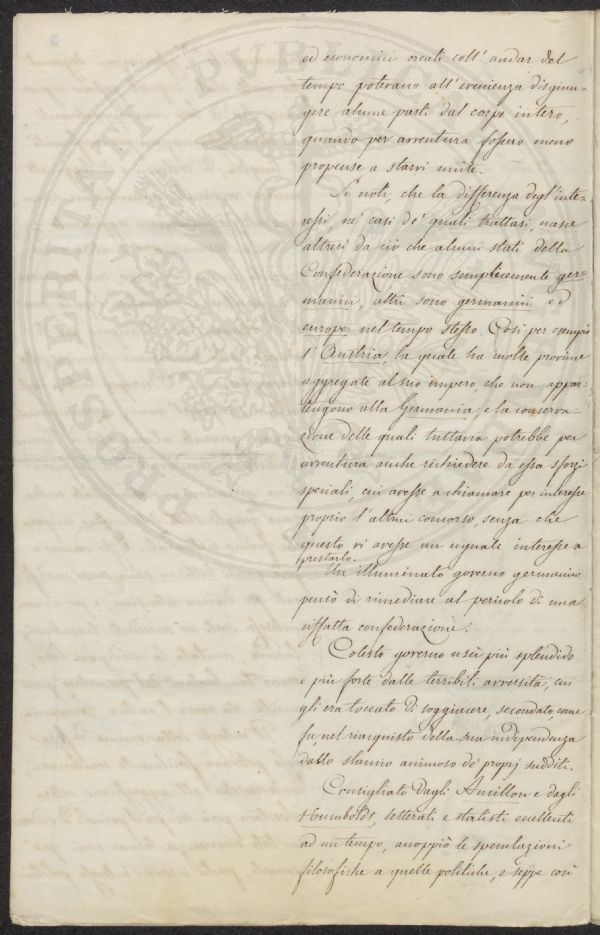 ed economici creati coll' andar del
tempo potevano all' evenienza disgiun-
gere alcune parti dal corpo intero,
quando per avventura fossero meno
propense a starvi unite.
Si noti, che la differenza degl' inte-
ressi, ne' casi de' quali trattasi, nasce
altresì da ciò che alcuni stati della
Confederazione sono semplicemente ger-
manici, altri sono germanici ed
europei nel tempo stesso. Così per esempio
l' Austria, la quale ha molte provincie
aggregate al suo impero, che non appar-
tengono alla Germania, e la conserva-
zione delle quali tuttavia potrebbe per
avventura anche richiedere da essa sforzi
speciali, cui avesse a chiamare per interesse
proprio l' altrui concorso, senza che
questo vi avesse un uguale interesse a
prestarlo.
Un illuminato governo germanico
pensò di rimediare al pericolo di una
siffatta confederazione.
Cotesto governo uscì più splendido
e più forte dalle terribili avversità, cui
gli era toccato di soggiacere, secondato, come
fu, nel riacquisto della sua indipendenza
dallo slancio animoso de' proprj sudditi.
Consigliato dagli Ancillon e dagli
Humboldt, letterati e statisti eccellenti
ad un tempo, accoppiò le speculazioni
filosofiche a quelle politiche, e seppe così
PROSPERITATI PUB